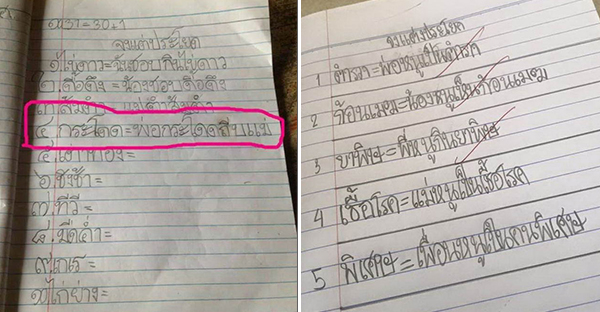 =30+1
จงแต่งประโยค
๑ ไข่ดาว=ฉันชอบกินไข่ดาว
๒ ดื้อดึง=น้องชอบดื้อดึง
๓ ส้มตำ=
๔ กระโดด=พ่อกระโดดถีบแม่
๕ เต่าทอง=
๖ ชิงช้า=
๗ ทีวี=
๘ มืดค่ำ=
๙ เกเร=
๑๐ ไก่ย่าง=
จงแต่งประโยค
1 ตำรวจ=พ่อหนูเป็นตำรวจ
2 ก้อนเมฆ=น้องหนูเป็นก้อนเมฆ
3 ยาพิษ=พี่หนูกินยาพิษ
4 เชื้อโรค=แม่หนูเป็นเชื้อโรค
5 พิเศษ=เพื่อนหนูเป็นคนพิเศษ